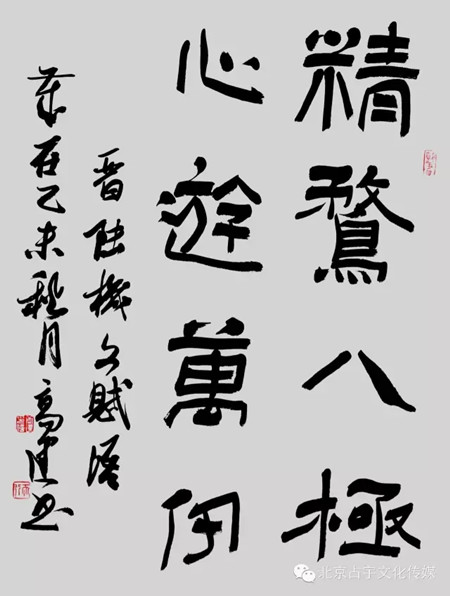 精騖八極
心遊萬仞
晉陸機文賦語
歲在乙未秋月高书
北京占宇文化传媒